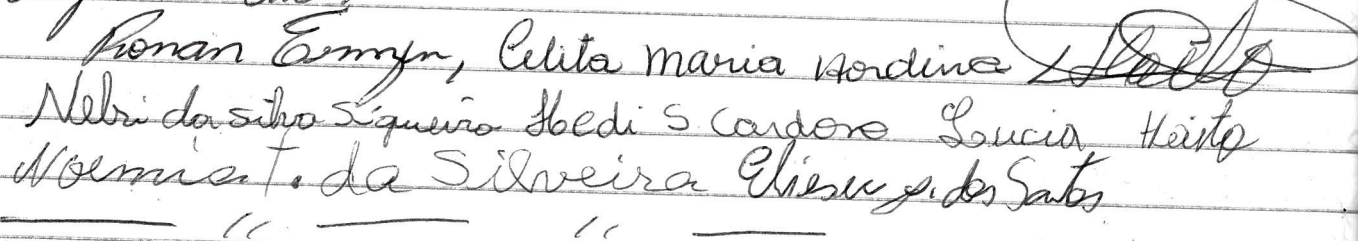 Ronan Ermyn, Celita Maria Nordina
Nelri da silva Siqueira Hedi S. Cardoso Lucia Haito
Noemia T. da Silveira Elieser g. dos Santos
— " — " —